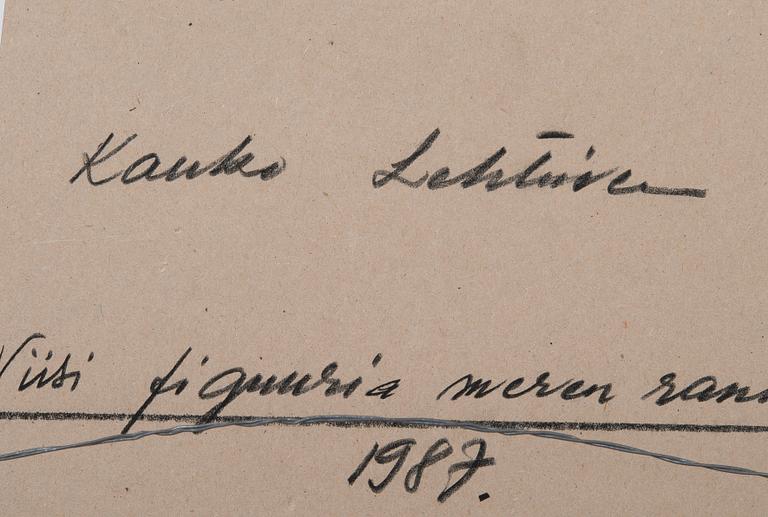 Kauko Lehtinen
Viisi figuuria meren ran
1987.